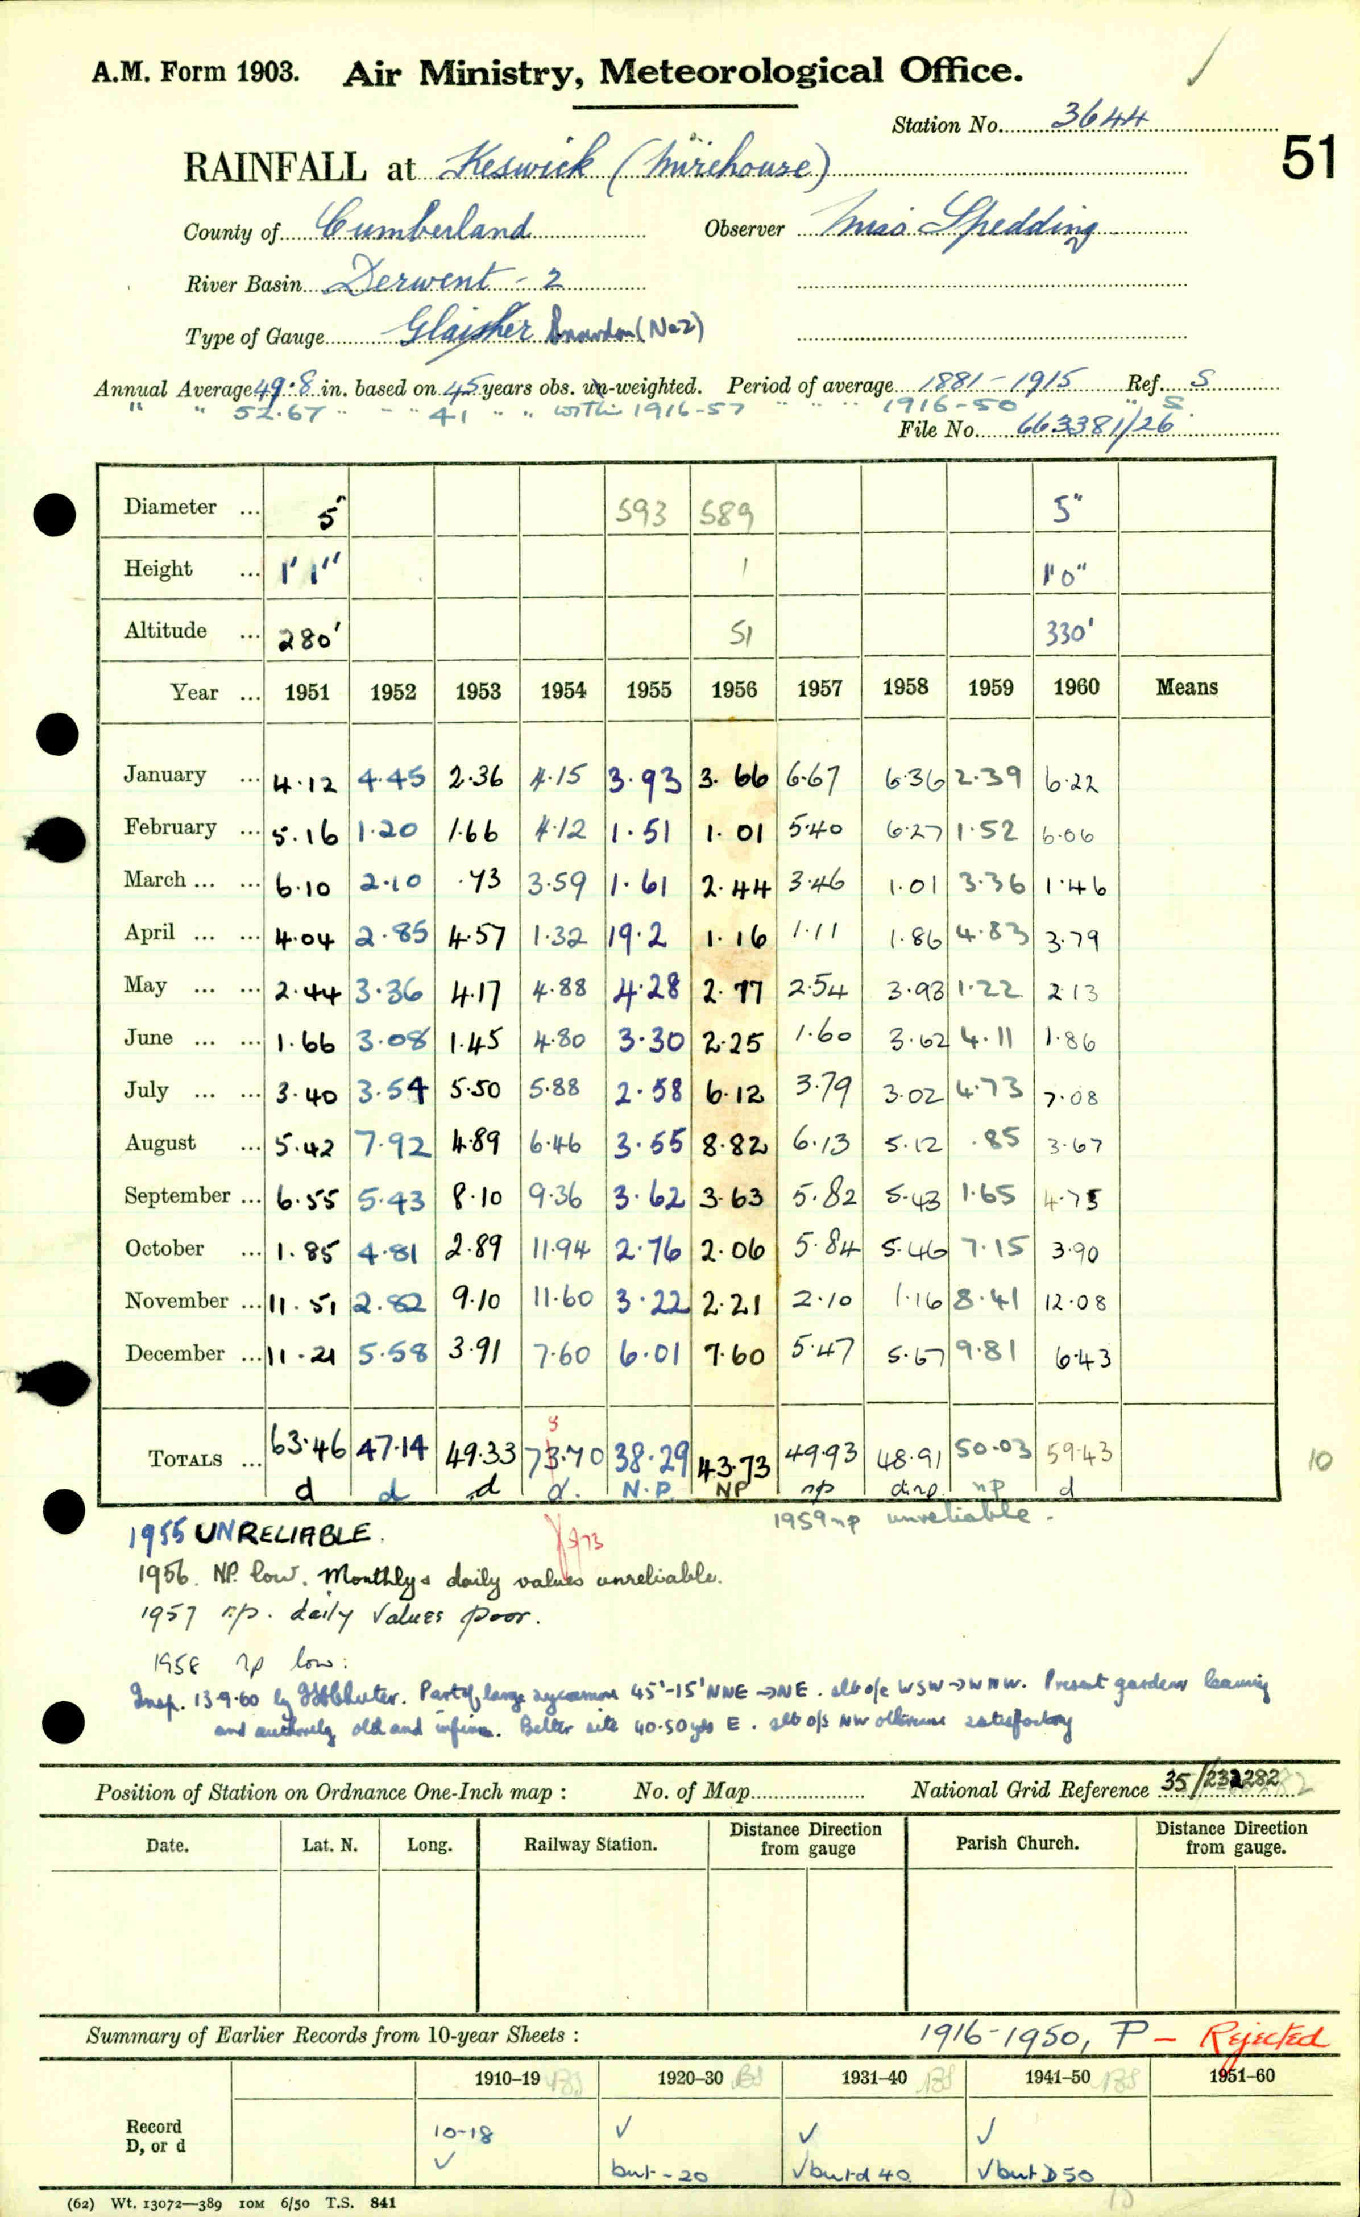 A.M. Form 1903. Air Ministry, Meteorological Office.
Station No. 3644
51
RAINFALL at Keswick (Mirehouse)
County of Cumberland Observer Miss Spedding
River Basin Derwent - 2
Type of Gauge Glaisher Snowdon (No 2)
Annual Average 49.8 in. based on 45 years obs. un-weighted. Period of average 1881-1915 Ref. S
" " 52.67 " " " 41 " " with 1916-57 " " " 1916-50 " S.
File No. 663381/26
Diameter ... 5" 593 589 5"
Height ... 1' 1" 1 1'0"
Altitude ... 280' 51 330'
Year ... 1951 1952 1953 1954 1955 1956 1957 1958 1959 1960 Means
January ... 4.12 4.45 2.36 4.15 3.93 3.66 6.67 6.36 2.39 6.22
February ... 5.16 1.20 1.66 4.12 1.51 1.01 5.40 6.27 1.52 6.06
March ... ... 6.10 2.10 .73 3.59 1.61 2.44 3.46 1.01 3.36 1.46
April ... ... 4.04 2.85 4.57 1.32 19.2 1.16 1.11 1.86 4.83 3.79
May ... ... 2.44 3.36 4.17 4.88 4.28 2.77 2.54 3.93 1.22 2.13
June ... ... 1.66 3.08 1.45 4.80 3.30 2.25 1.60 3.62 4.11 1.86
July ... ... 3.40 3.54 5.50 5.88 2.58 6.12 3.79 3.02 4.73 7.08
August ... 5.42 7.92 4.89 6.46 3.55 8.82 6.13 5.12 .85 3.67
September ... 6.55 5.43 8.10 9.36 3.62 3.63 5.82 5.43 1.65 4.75
October ... 1.85 4.81 2.89 11.94 2.76 2.06 5.84 5.46 7.15 3.90
November ... 11.51 2.82 9.10 11.60 3.22 2.21 2.10 1.16 8.41 12.08
December ... 11.21 5.58 3.91 7.60 6.01 7.60 5.47 5.67 9.81 6.43
5
TOTALS ... 63.46 47.14 49.33 73.70 38.29 43.73 49.93 48.91 50.03 59.43
10
d d d d. N.P. NP np d.np. np d
1959 np unreliable.
1955 UNRELIABLE.
1956. NP. low. Monthly & daily values unreliable.
1957 np. daily values poor.
1958 np low:
Insp. 13.9.60 by Part of large sycamore 45'-15' NNE → NE. slb o/c WSW → WNW. Present gardener leaving
and old and infirm. Better site 40-50 yds E. slb o/s NW otherwise satisfactory
Position of Station on Ordnance One-Inch map : No. of Map National Grid Reference 35/232282
Date. Lat. N. Long. Railway Station. Distance Direction from gauge Parish Church. Distance Direction from gauge.
Summary of Earlier Records from 10-year Sheets : 1916-1950, P - Rejected
1910–19 BS 1920–30 BS 1931–40 BS 1941–50 BS 1951–60
Record D, or d
10-18 ✓ ✓ ✓
✓ but - 20 ✓ but d 40 ✓ but D 50
(62) Wt. 13072—389 10M 6/50 T.S. 841